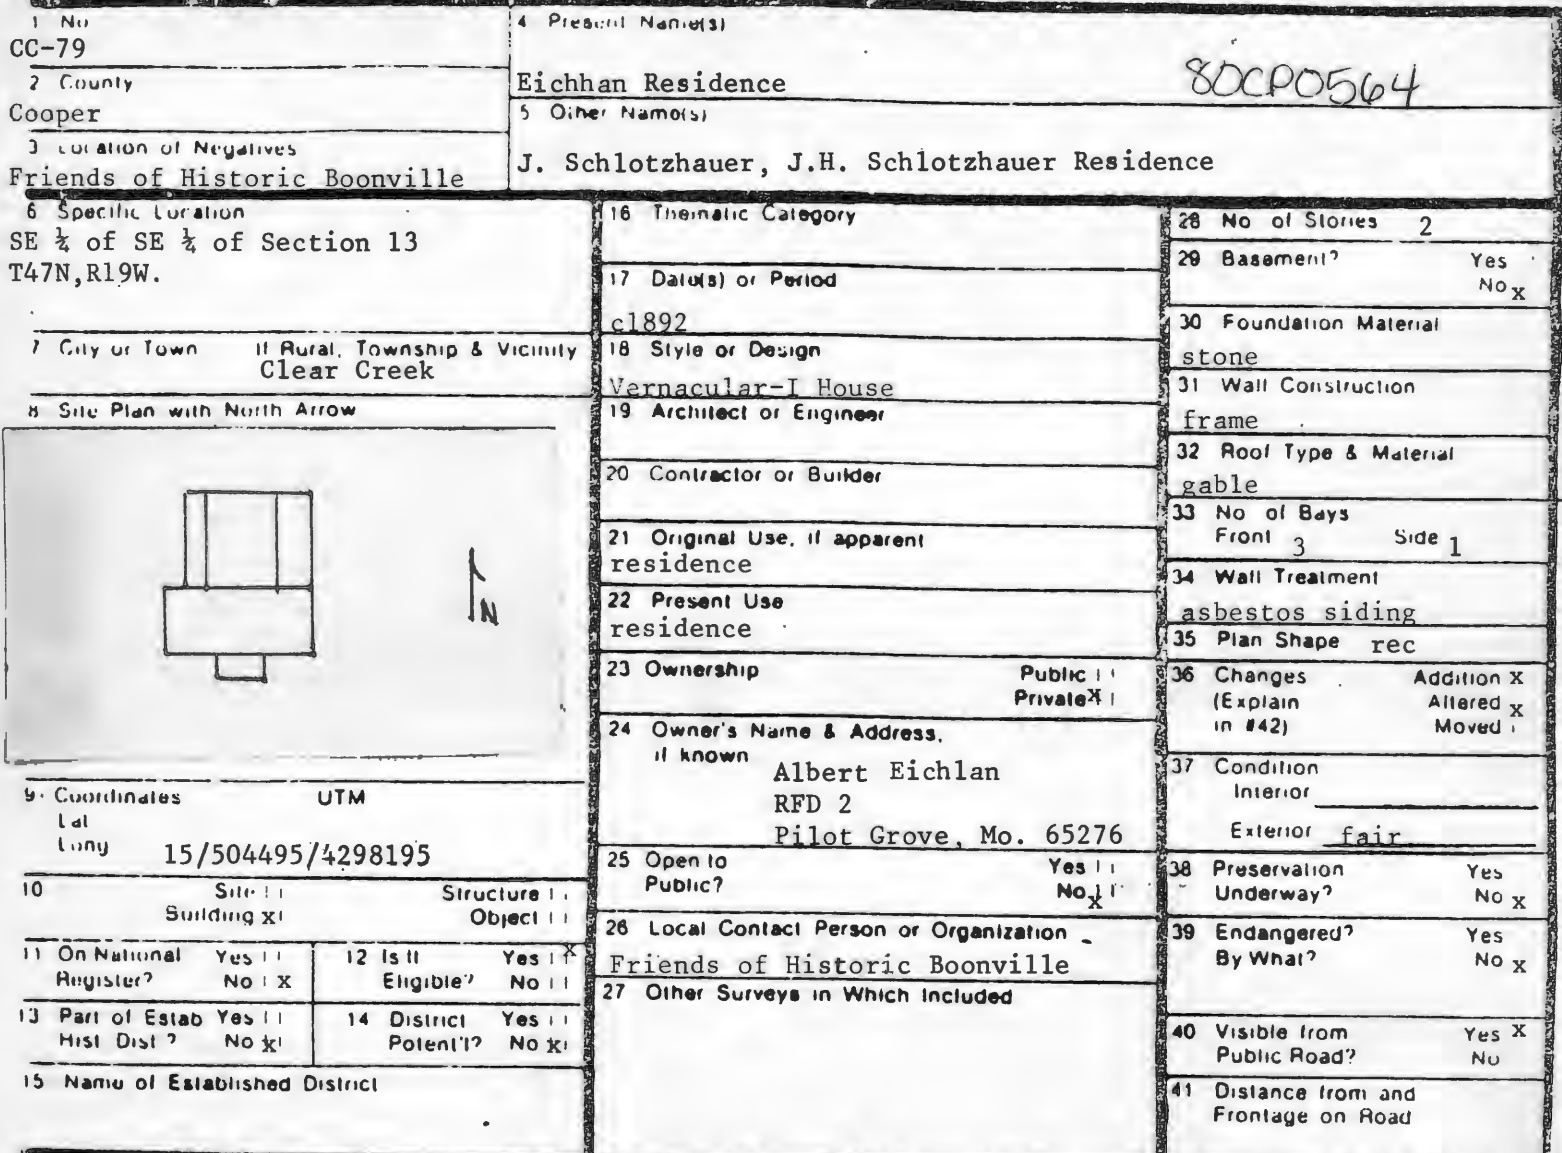 1 No
CC-79
2 County
Cooper
3 Location of Negatives
Friends of Historic Boonville
4 Present Name(s)
Eichhan Residence
80CP0564
5 Other Name(s)
J. Schlotzhauer, J.H. Schlotzhauer Residence
6 Specific Location
SE ¼ of SE ¼ of Section 13
T47N,R19W.
7 City or Town If Rural, Township & Vicinity
Clear Creek
8 Site Plan with North Arrow
N
9. Coordinates UTM
Lat
Long
15/504495/4298195
10 Site Structure
Building x Object
11 On National Register? Yes No X
12 Is It Eligible? Yes x No
13 Part of Estab Hist Dist? Yes No x
14 District Potent'l? Yes No x
15 Name of Established District
16 Thematic Category
17 Date(s) or Period
c1892
18 Style or Design
Vernacular-I House
19 Architect or Engineer
20 Contractor or Builder
21 Original Use, if apparent
residence
22 Present Use
residence
23 Ownership Public
Private X
24 Owner's Name & Address,
if known
Albert Eichlan
RFD 2
Pilot Grove, Mo. 65276
25 Open to Yes
Public? No x
26 Local Contact Person or Organization
Friends of Historic Boonville
27 Other Surveys in Which Included
28 No of Stories 2
29 Basement? Yes
No x
30 Foundation Material
stone
31 Wall Construction
frame
32 Roof Type & Material
gable
33 No of Bays
Front 3 Side 1
34 Wall Treatment
asbestos siding
35 Plan Shape rec
36 Changes Addition x
(Explain Altered x
in #42) Moved
37 Condition
Interior
Exterior fair
38 Preservation Yes
Underway? No x
39 Endangered? Yes
By What? No x
40 Visible from Yes x
Public Road? No
41 Distance from and
Frontage on Road